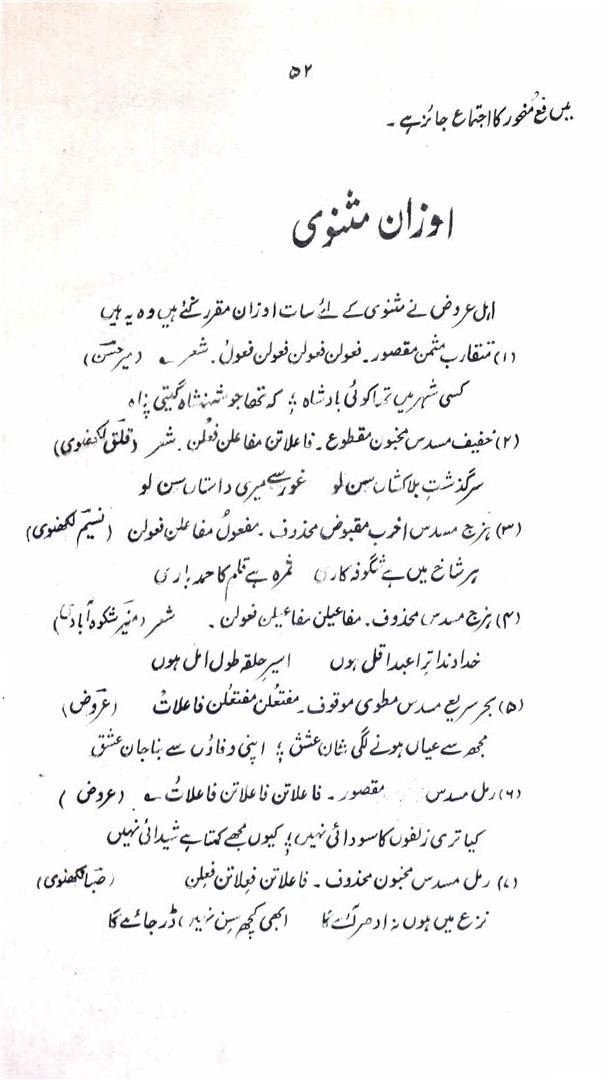 ۵۲
میں فع مفحور کا اجتماع جائز ہے ۔
اوزان مثنوی
اہل عروض نے مثنوی کے لئے سات اوزان مقرر کئے ہیں وہ یہ ہیں
(۱) متقارب مثمن مقصور۔ فعولن فعولن فعولن فعولُ۔ شعر ؎ (میر حسنؔ)
کسی شہر میں تھا کوئی بادشاہ ؛ کہ تھا جو شہنشاہ گیتی پناہ
(۲) خفیف مسدس مخبون مقطوع ۔ فاعلاتن مفاعلن فعلن ۔ شعر (قلقؔ لکھنوی)
سرگذشتِ بلاکشاں سن لو غور سے میری داستاں سن لو
(۳) ہزج مسدس اخرب مقبوض محذوف ۔ مفعولُ مفاعلن فعولن (نسیمؔ لکھنوی)
ہر شاخ میں ہے شگوفہ کاری ثمرہ ہے قلم کا حمد باری
(۴) ہزج مسدس محذوف ۔ مفاعیلن مفاعیلن فعولن ۔ شعر (منیرؔ شکوہ آبادی)
خداوندا ترا عبد اقل ہوں اسیر حلقہ طول امل ہوں
(۵) بحر سریع مسدس مطوی موقوف ۔ مفتعلن مفتعلن فاعلاتْ (عروضؔ)
مجھ سے عیاں ہونے لگی شان عشق ؛ اپنی وفاؤں سے بنا جان عشق
(۶) رمل مسدس مقصور ۔ فاعلاتن فاعلاتن فاعلاتُ ؎ (عروض)
کیا تری زلفوں کا سودائی نہیں ؛ کیوں مجھے کہتا ہے شیدائی نہیں
(۷) رمل مسدس مخبون محذوف ۔ فاعلاتن فعلاتن فعلن (صباؔ لکھنوی)
نزع میں ہوں نہ ادھر آئے گا ابھی کچھ سن نہیں ڈر جائے گا